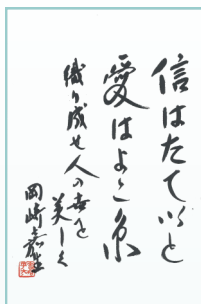 信はたていと
愛はよこ糸
織り成せ人の世を
美しく
岡崎嘉平太